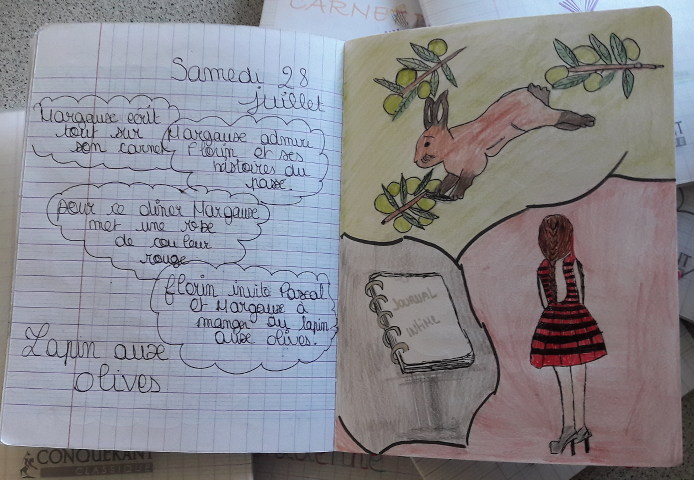 CARNET
Samedi 28
juillet
Margause ecrit
tout sur
son carnet
Margause admire
Florin et ses
histoires du
passe.
pour ce dîner Margause
met une robe
de couleur
rouge
florin invite Pascal
et Margause à
manger du lapin
aux olives.
Lapin aux
olives
JOURNAL
INTIME
CONQUERANT
CLASSIQUE